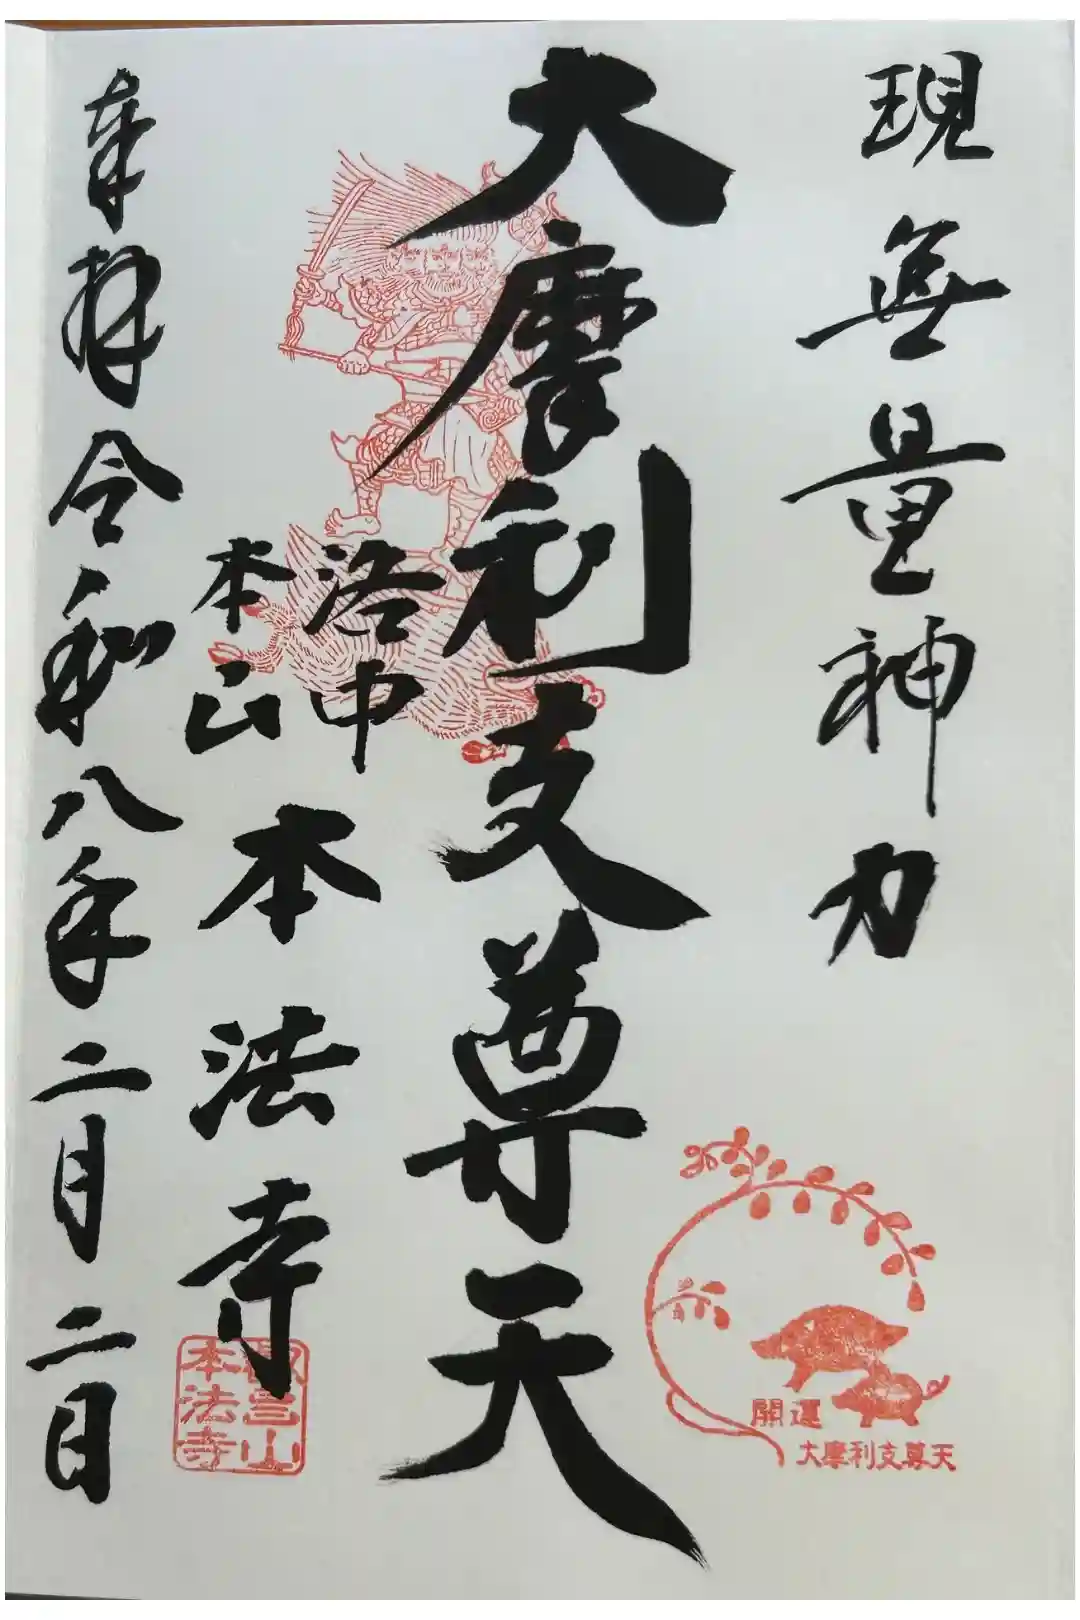 現無量神力
大摩利支尊天
洛中
本山
本法寺
奉拝 令和八年二月二日
開運
大摩利支尊天
叡昌山
本法寺